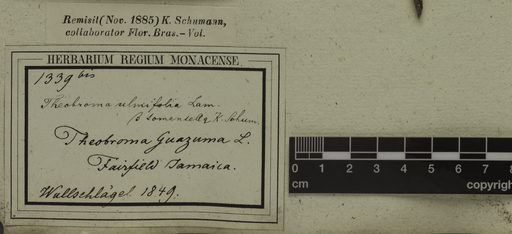 Remisit (Nov. 1885) K. Schumann,
collaborator Flor. Bras.—Vol.
HERBARIUM REGIUM MONACENSE.
1339 bis
Theobroma ulmifolia Lam.
β tomentella K. Schum.
Theobroma Guazuma L.
Fairfield Jamaica.
Wullschlägel. 1849.
0 1 2 3 4 5 6 7 8
cm copyright